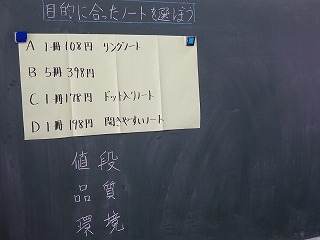 目的に合ったノートを選ぼう
A 1冊 108円 リングノート
B 5冊 398円
C 1冊 178円 ドット入りノート
D 1冊 198円 開きやすいノート
値段
品質
環境